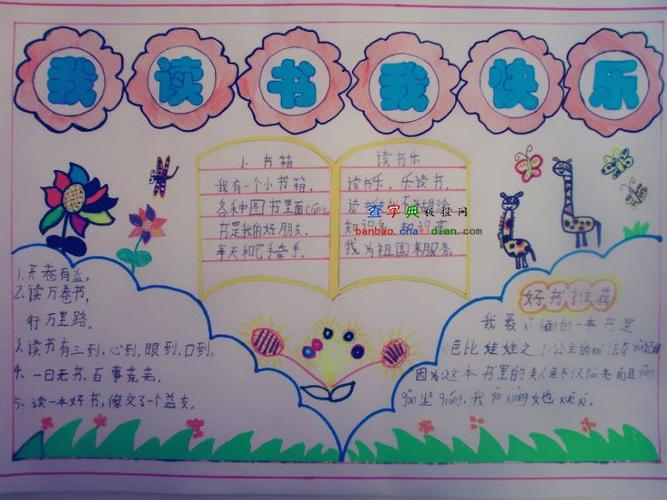 我读书我快乐
小书箱
我有一个小书箱,
各种图书里面cáng
书是我的好朋友,
每天和它手牵手。
读书乐
读书乐,乐读书,
读书
知识
我为祖国来服务。
查字典板报网
banbao.chazidian.com
1. 开卷有益。
2. 读万卷书,
行万里路。
3. 读书有三到,心到、眼到、口到。
4. 一日无书,百事荒芜。
5. 读一本好书,像交了一个益友。
好书推荐
我最xǐ huan的一本书是
芭比娃娃之小公主的mí
因为这本书里的
坚qiáng,我